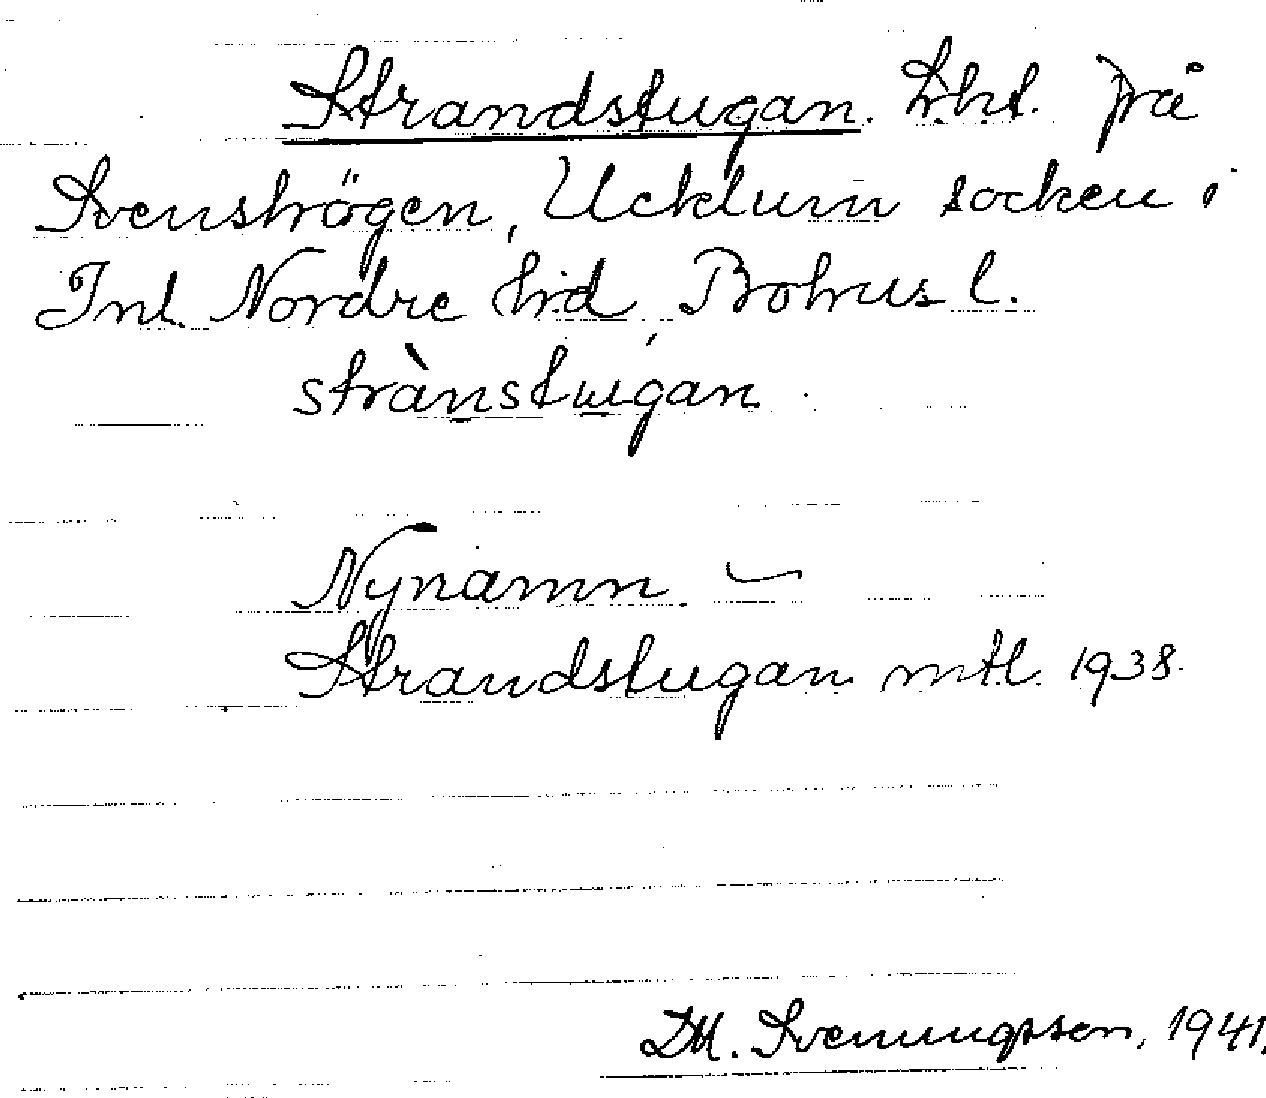 Strandstugan. Lht. på
Svenshögen, Ucklum socken i
Inl. Nordre hd, Bohus l.
strànstugan.
Nynamn.
Strandstugan mtl. 1938.
D.M. Svenungsson, 1941.